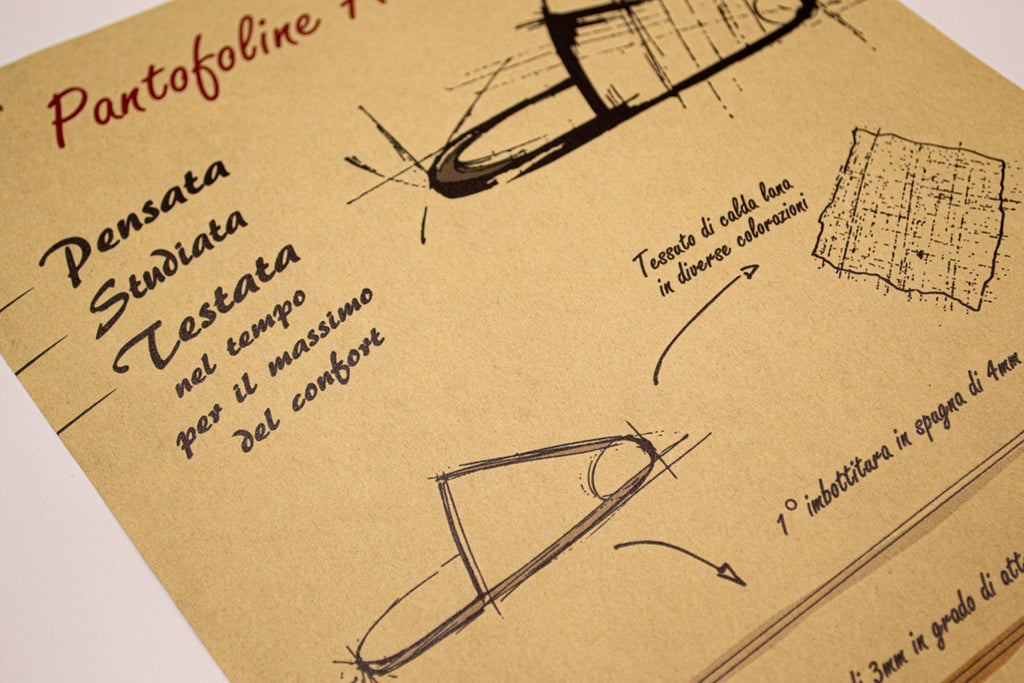 Pantofoline
Pensata
Studiata
Testata
nel tempo
per il massimo
del confort
Tessuto di calda lana
in diverse colorazioni
1° imbottitara in spugna di 4mm
di 3mm in grado di